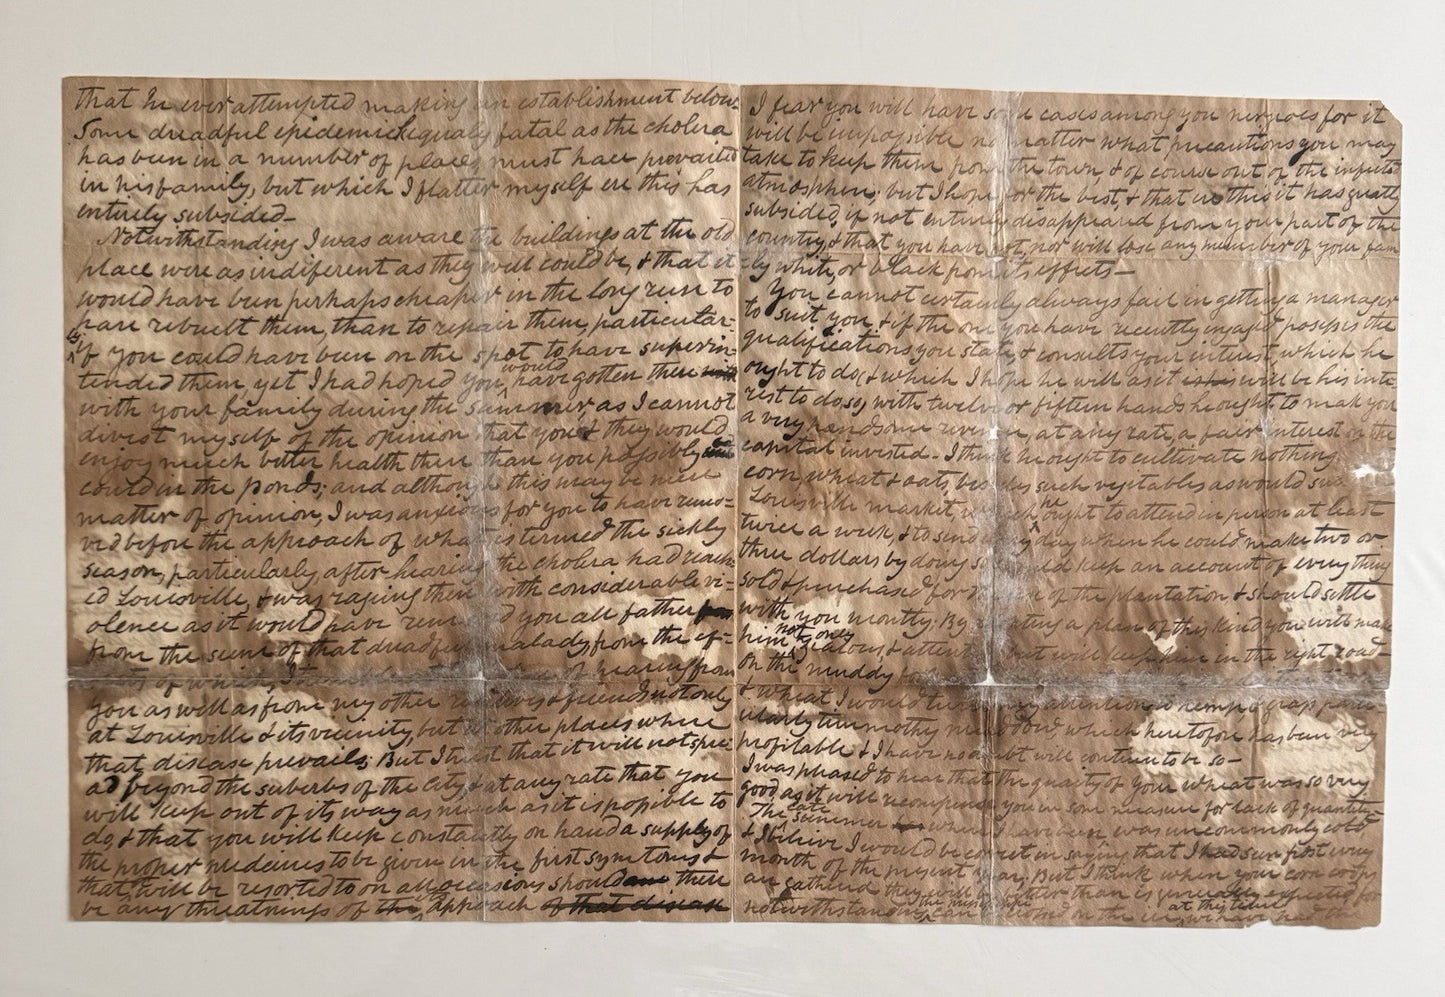 that he ever attempted making an establishment below.
Some dreadful epidemick equaly fatal as the cholera
has been in a number of places must have prevailed
in his family, but which I flatter myself ere this has
entirely subsided_
Notwithstanding I was aware the buildings at the old
place were as indiferent as they will could be, & that it
would have been perhaps cheaper in the long run to
have rebuilt them, than to repair them, particular-
ly if you could have been on the spot to have superin-
tended them, yet I had hoped you would have gotten there
with your family during the summer, as I cannot
divest myself of the opinion that you & they would
enjoy much better health there than you possibly
could in the ponds; and although this may be mere
matter of opinion, I was anxious for you to have remo-
ved before the approach of what is termed the sickly
season, particularly, after hearing the cholera had reach-
ed Louisville, & was raging there with considerable vi-
olence as it would have removed you all father
from the scene of that dreadful malady, from the ef-
of which, of hearing from
you as well as from my other relatives & friends not only
at Louisville & its vicinity, but other places where
that disease prevails. But I trust that it will not spre
ad beyond the suburbs of the city & at any rate that you
will keep out of its way as much as it is possible to
do, & that you will keep constantly on hand a supply of
the proper medecines to be given in the first symtoms &
that will be resorted to on all occasions should there
be any threatnings of the approach of that disease
I fear you will have some cases among you nergroes for it
will be impossible no matter what precautions you may
take to keep them from the town, & of course out of the infected
atmosphere; but I hope for the best, & that ere this it has greatly
subsided, if not entirely disappeared from your part of the
country, & that you have not, nor will lose any number of your fam
ily white, or black from its effects_
You cannot certainly always fail in getting a manager
to suit you, & if the one you have recently engaged possess the
qualifications you state, & consults your interest, which he
ought to do, & which I hope he will as it will be his inte
rest to do so, with twelve or fifteen hands he ought to make you
a very handsome revenue, at any rate, a fair interest on the
capital invested_ I think he ought to cultivate nothing
corn, wheat & oats, besides such vegitables as would suit
Louisville market, which he ought to attend in person at least
twice a week, & to send every day when he could make two or
three dollars by doing so, and keep an account of every thing
sold & purchased for the use of the plantation & should settle
with you montly. By adopting a plan of this kind you will make
him not only zealous & attentive but will keep him in the right road
on the muddy
& wheat I would turn my attention to hemp, & grass parti
ularly timmothy meadow, which heretofore has been very
profitable & I have no doubt will continue to be so_
I was pleased to hear that the quality of your wheat was so very
good as it will recompense you in some measure for lack of quantity
The late summer where I have been was uncommonly cold
& I believe I would be correct in saying that I had seen frost every
month of the present year. But I think when your corn crops
are gathered they will be better than is generally expected for
notwithstanding the on the we have had the at this time